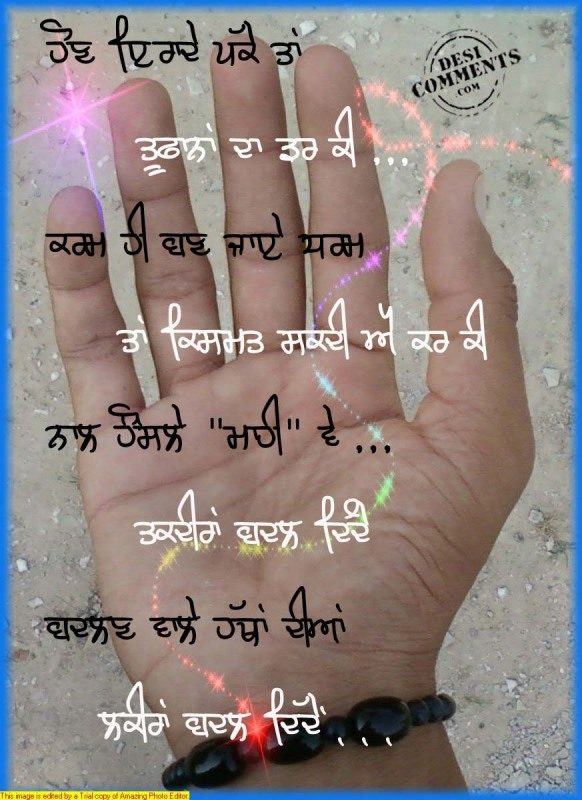 ਹੋਣ ਇਰਾਦੇ ਪੱਕੇ ਤਾਂ
DESI
COMMENTS
.COM
ਤੂਫਾਨਾਂ ਦਾ ਡਰ ਕੀ ...
ਕਰਮ ਹੀ ਬਣ ਜਾਏ ਧਰਮ
ਤਾਂ ਕਿਸਮਤ ਸਕਦੀ ਐ ਕਰ ਕੀ
ਨਾਲ ਹੌਂਸਲੇ "ਮਾਹੀ" ਵੇ ...
ਤਕਦੀਰਾਂ ਬਦਲ ਦਿੰਦੇ
ਬਦਲਣ ਵਾਲੇ ਹੱਥਾਂ ਦੀਆਂ
ਲਕੀਰਾਂ ਬਦਲ ਦਿੰਦੇ . . .
This image is edited by a Trial copy of Amazing Photo Editor.